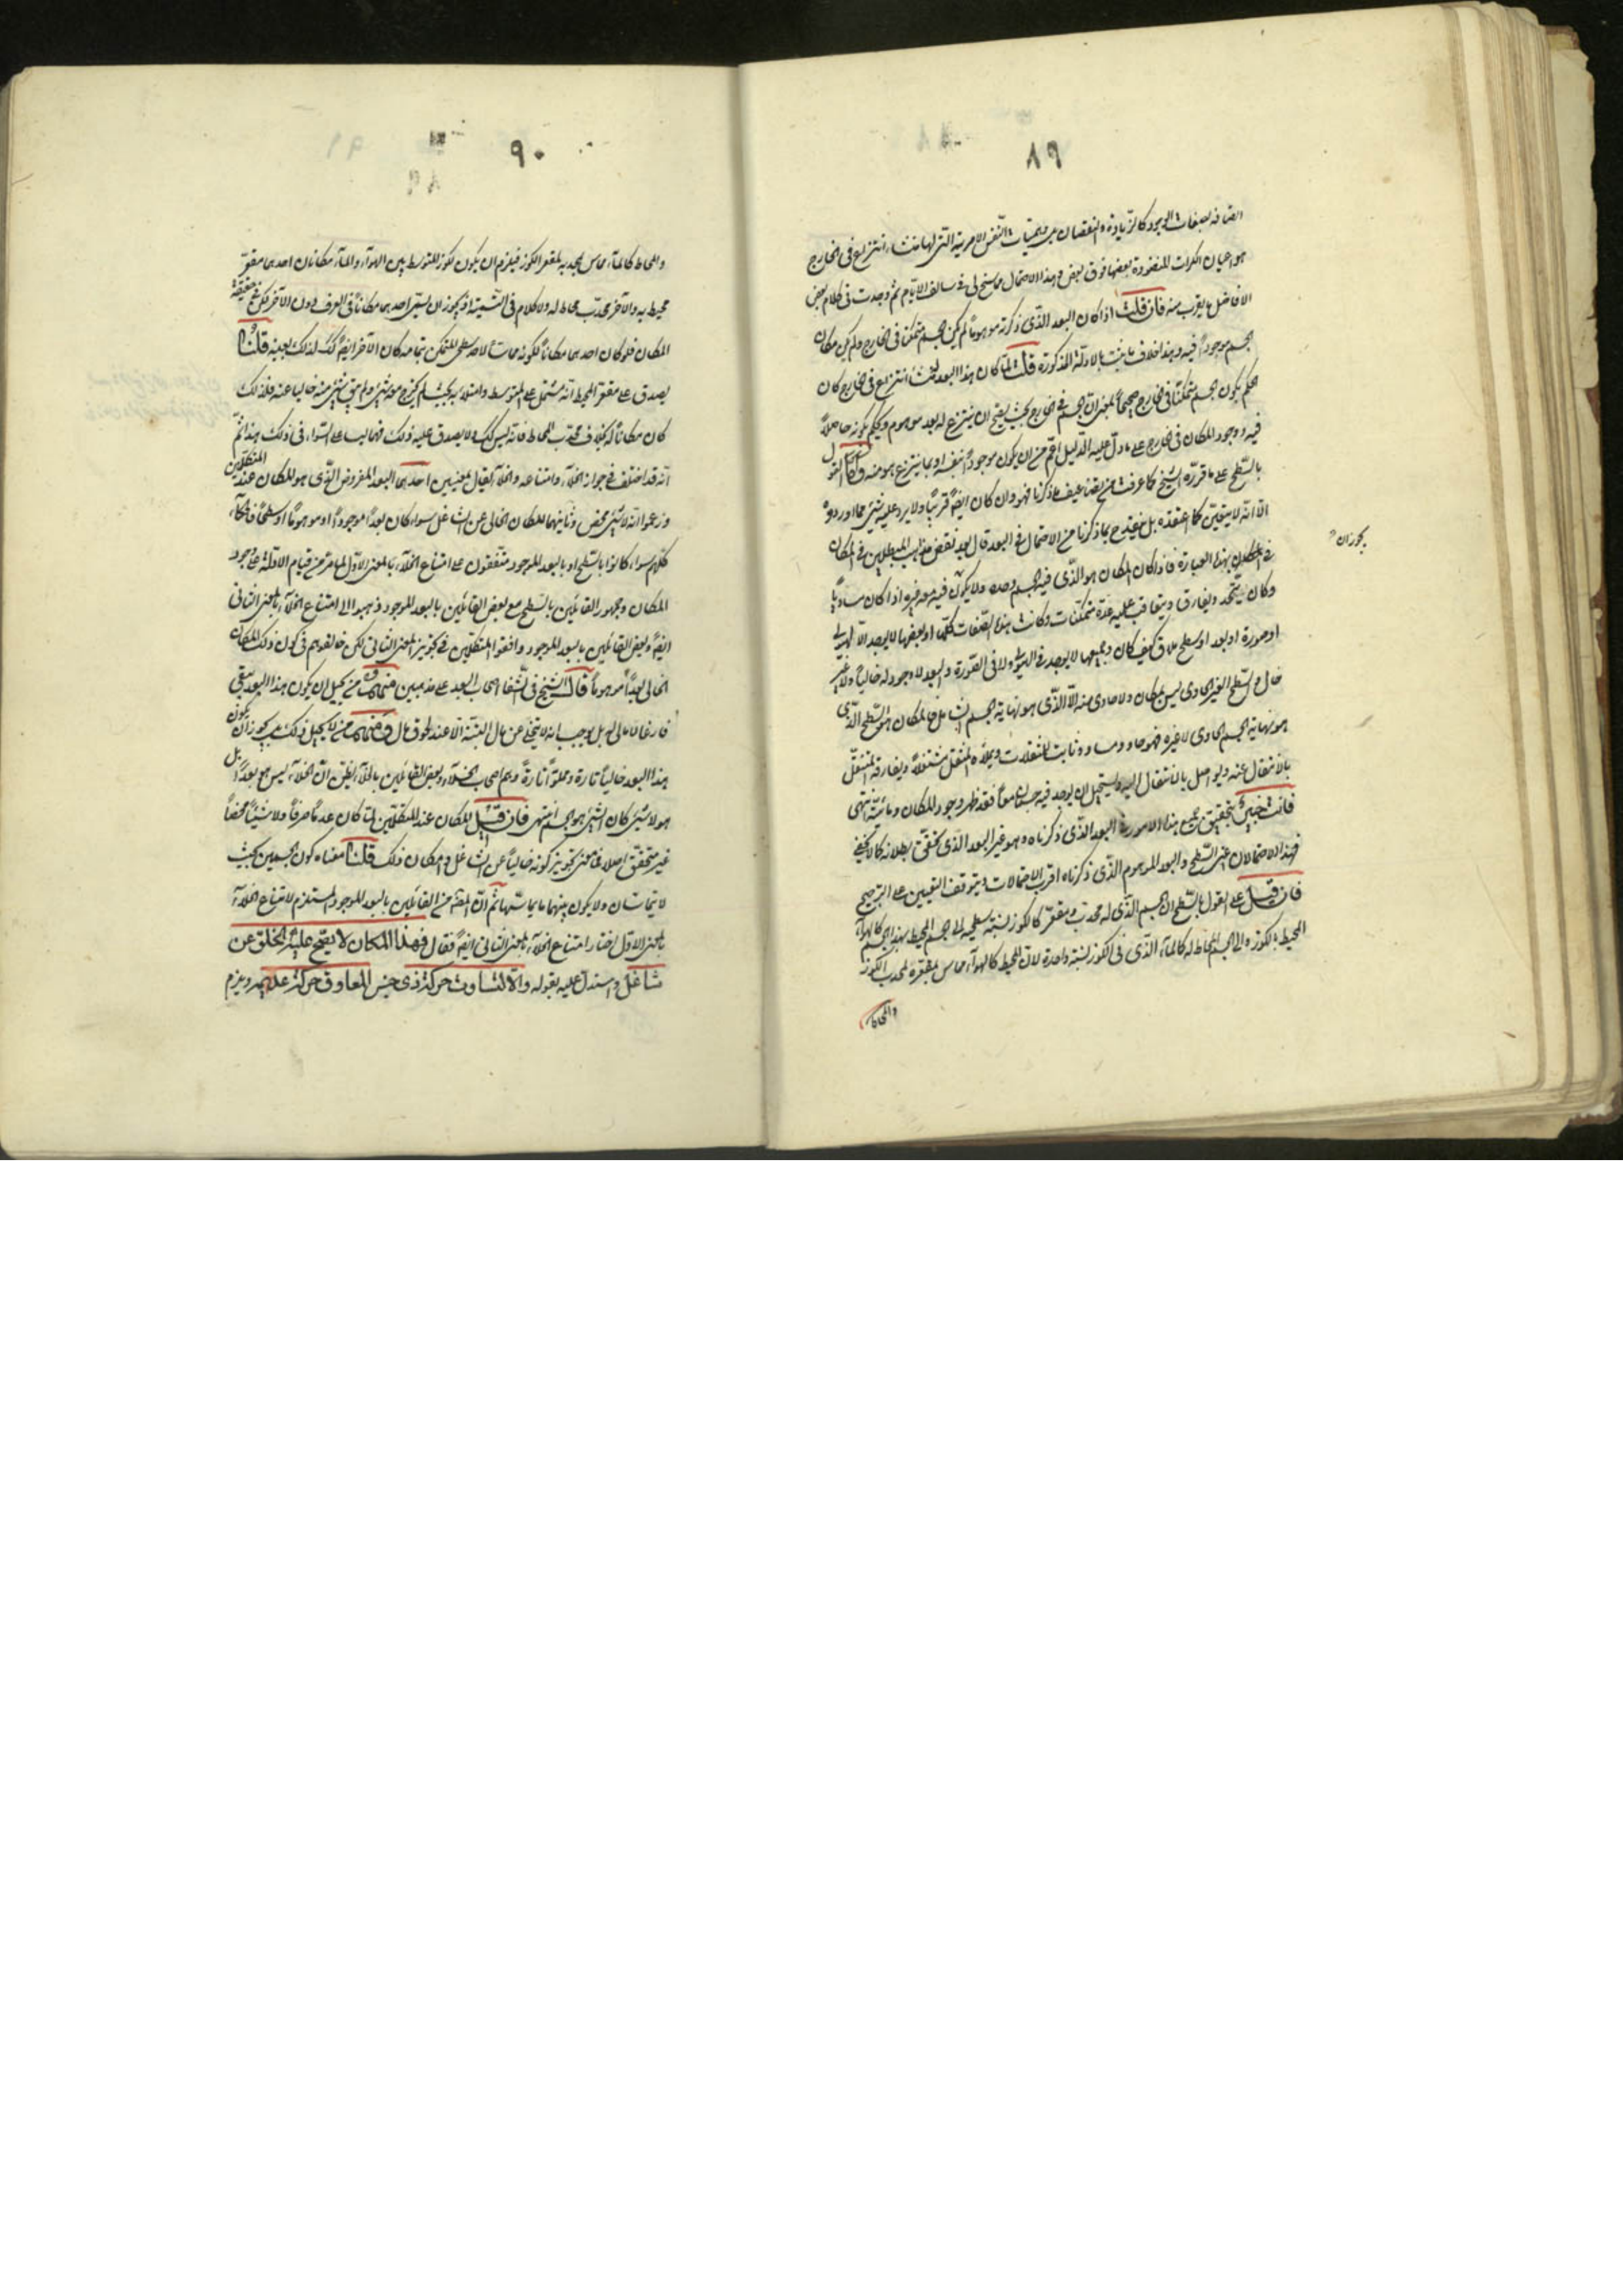 ٨٩
اتصافه بصفات الوجود كالزيادة والنقصان من حيثيات النفس الامرية التى لها منشاء انتزاع فى الخارج
هو اعيان الكرات المنضودة بعضها فوق بعض وهذا الاحتمال مما سنح لى فى سالف الايام ثم وجدت فى كلام بعض
الافاضل ما يقرب منه فان قلت اذا كان البعد الذى ذكرته موهوما لم يكن الجسم متمكنا فى الخارج ولم يكن مكان
الجسم موجودا فيه وهذا خلاف ما يثبت بالادلة المذكورة قلت لما كان هذا البعد لمنشاء انتزاع فى الخارج كان
الحكم بكون الجسم متمكنا فى الخارج صحيحا بمعنى ان الجسم فى الخارج بحيث يصح ان ينتزع له بعد موهوم ويحكم بكونه حاصلا
فيه ووجود المكان فى الخارج على ما دل عليه الدليل اعم من ان يكون موجودا بنفسه او بما ينتزع هو منه واما القول
بالسطح على ما قرره الشيخ كما عرفت من تضاعيف ما ذكرنا فهو وان كان ايضا قريبا ولا يرد عليه شئ مما اوردوه
الا انه لا يتعين كما اعتقده بل يقدح بما ذكرنا من الاحتمال فى البعد قال بعد نقض مذاهب المبطلين فى المكان
بهذه العبارة فاذا كان المكان هو الذى فيه الجسم وحده ولا يكون فيه معه غيره اذا كان مساويا
وكان يتجدد ويفارق ويتعاقب عليه عدة متمكنات وكانت هذه الصفات كلها او بعضها لا يوجد الا لهيولى
او صورة او بعد او سطح ملاق كيف كان وجميعها لا يوجد فى الهيولى ولا فى الصورة والبعد لا وجود له خاليا ولا غير
خال والسطح الغير الحاوى ليس بمكان ولا حاوى منه الا الذى هو نهاية الجسم الشامل فالمكان هو السطح الذى
هو نهاية الجسم الحاوى لا غيره فهو حاو ومساو وثابت للمنتقلات ويملأه المنتقل شغلا ويفارقه المنتقل
بالانتقال عنه ويواصل بالانتقال اليه ويستحيل ان يوجد فيه جسمان معا فقد ظهر وجود المكان وماهيته انتهى
فانت خبير بتحقيق جميع هذه الامور فى البعد الذى ذكرناه وهو غير البعد الذى تحقق بطلانه كما لا يخفى
فهذا الاحتمالان اعنى السطح والبعد الموهوم الذى ذكرناه اقرب الاحتمالات ويتوقف التعيين على الترجيح
فان قيل على القول بالسطح ان الجسم الذى له محدب ومقعر كالكوز نسبة سطحيه الى الجسم المحيط بهذا الجسم كالهواء
المحيط بالكوز والى الجسم المحاط له كالماء الذى فى الكوز نسبة واحدة لان المحيط كالهواء مماس بمقعره لمحدب الكوز
والمحاط
يجوز ان
٩٠
والمحاط كالماء مماس بمحدبه لمقعر الكوز فيلزم ان يكون للكوز المتوسط بين الهواء والماء مكانان احدهما مقعر
محيط به والآخر محدب محاط له ولا كلام فى التسمية اذ يجوز ان يسمى احدهما مكانا فى العرف دون الآخر لكن فى حقيقة
المكان فلو كان احدهما مكانا لكونه مماسا لاحد سطحى المتمكن بتمامه كان الآخر ايضا كك لذلك بعينه قلنا
يصدق على مقعر المحيط انه مشتمل على المتوسط وامتلاء به بحيث لم يخرج منه شئ ولم يبق شئ منه خاليا عنه فلذلك
كان مكانا له بخلاف محدب المحاط فانه ليس كك ولا يصدق عليه ذلك فهما ليسا على السواء فى ذلك هذا ثم
انه قد اختلف فى جواز الخلاء وامتناعه والخلاء يقال لمعنيين احدهما البعد المفروض الذى هو للمكان عند المتكلمين
وزعموا انه لا شئ محض وثانيهما المكان الخالى عن الشاغل سواء كان بعدا موجودا او موهوما او سطحا فالحكماء
كلهم سواء كانوا بالسطح او بالبعد الموجود متفقون على امتناع الخلاء بالمعنى الاول لما مر من قيام الادلة على وجود
المكان وجمهور القائلين بالسطح مع بعض القائلين بالبعد الموجود ذهبوا الى امتناع الخلاء بالمعنى الثانى
ايضا وبعض القائلين بالبعد الموجود وافقوا المتكلمين فى تجويز المعنى الثانى لكن خالفوهم فى كون ذلك المكان
الخالى بعدا موهوما قال الشيخ فى الشفاء اصحاب البعد على مذهبين فمنهم من يحيل ان يكون هذا البعد يبقى
فارغا لا مالى له بل يوجب انه لا يتخلى عن مال البتة الا عند لحوق مال ومنهم من لا يحيل ذلك بل يجوز ان يكون
هذا البعد خاليا تارة ومملوا تارة وهم اصحاب الخلاء وبعض القائلين بالخلاء يظن ان الخلاء ليس هو بعدا بل
هو لا شئ كان الشئ هو الجسم انتهى فان قيل المكان عند المتكلمين لما كان عدما صرفا ولا شيئا محضا
غير متحقق اصلا فما معنى تجويز كونه خاليا عن الشاغل وامكان ذلك قلنا معناه كون الجسمين بحيث
لا يتماسان ولا يكون بينهما ما يماسهما ثم ان المصنف من القائلين بالبعد الموجود المستلزم لامتناع الخلاء
بالمعنى الاول اختار امتناع الخلاء بالمعنى الثانى ايضا فقال فهذا المكان لا يصح عليه الخلو عن
شاغل واستدل عليه بقوله والا لتساوت حركة ذى جنس المعاوق حركة عديمه ويلزم